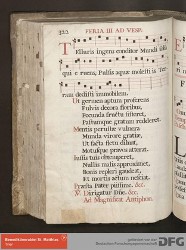 322 FERIA III AD VESP.
Telluris ingens conditor Mundi solum
qui e ruens, Pulsis aquæ molestiis Ter-
ram dedisti immobilem.
Ut germen aptum proferens
Fulvis decora floribus,
Fœcunda fructu sisteret,
Pastumque gratum redderet.
Mentis perustæ vulnera
Munda virore gratiæ,
Ut facta fletu diluat,
Motusque pravos atterat.
Jussis tuis obtemperet,
Nullis malis approximet,
Bonis repleri gaudeat,
Et mortis actum nesciat.
Præsta Pater piissime. &c.
℣. Dirigatur Dñe. &c.
Ad Magnificat Antiphon.